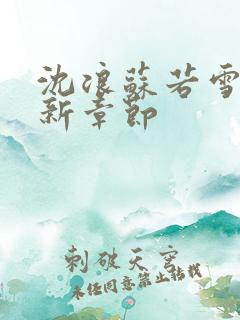 沈浪蘇若雪
新章節
刺破天穹
未经同意禁止转载